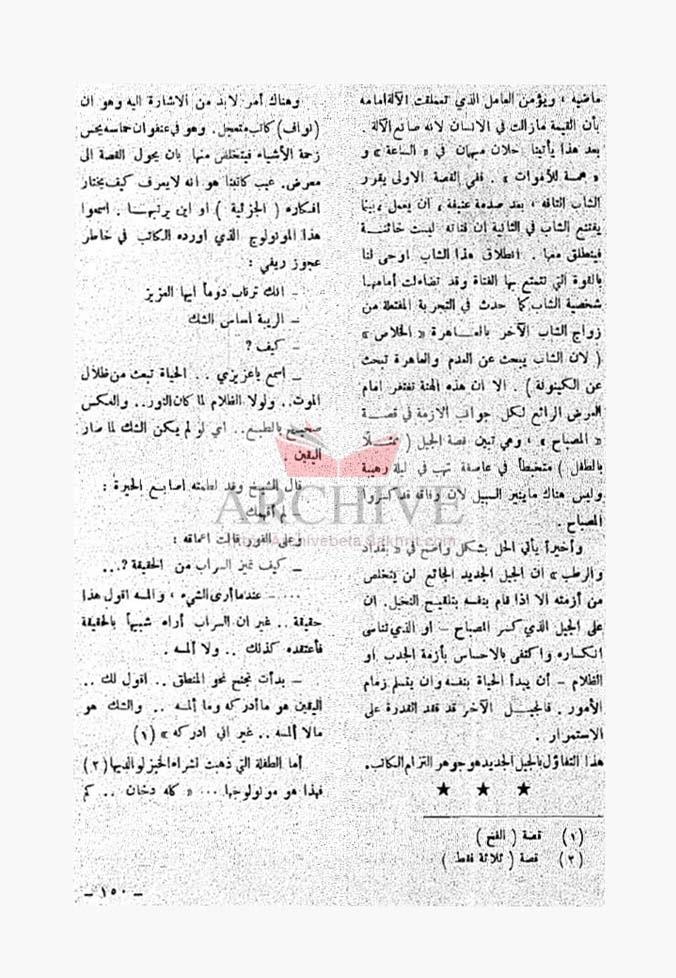 ماضيه ، ويؤمن العامل الذي تعملقت الآلة امامه
بأن القيمة مازالت في الانسان لانه صانع الآلة .
بعد هذا يأتينا حلان مبهمان في « الساعة » و
« همسة للأموات » . ففي القصة الاولى يقرر
الشاب التافه ، بعد صدمة عنيفة ، أن يعمل ، بينما
يقتنع الشاب في الثانية ان فتاته ليست خائنة
فينطلق معها . انطلاق هذا الشاب اوحى لنا
بالقوة التي تتمتع بها الفتاة وقد تضاءلت أمامها
شخصية الشاب كما حدث في التجربة المفتعلة من
زواج الشاب الآخر بالعاهرة « الخلاص »
( لان الشاب يبحث عن العدم والعاهرة تبحث
عن الكينونة ) . الا ان هذه الهنة تغتفر امام
العرض الرائع لكل جوانب الازمة في قصة
« المصباح » ، وهي تبين قصة الجيل ( ممثلاً
بالطفل ) متخبطاً في عاصفة تهب في ليلة رهيبة
وليس هناك ما ينير السبيل لان رفاقه قد كسروا
المصباح .
وأخيراً يأتي الحل بشكل واضح في « بغداد
والرطب » ان الجيل الجديد الجائع لن يتخلص
من أزمته الا اذا قام بنفسه بتلقيح النخيل . ان
على الجيل الذي كسر المصباح – او الذي تناسى
انكساره واكتفى بالاحساس بأزمة الجدب او
الظلام – أن يبدأ الحياة بنفسه وان يتسلم زمام
الأمور . فالجيل الآخر قد فقد القدرة على
الاستمرار .
هذا التفاؤل بالجيل الجديد هو جوهر التزام الكاتب .
★ ★ ★
(١) قصة ( الفخ )
(٢) قصة ( ثلاثة فقط )
وهناك أمر لابد من الاشارة اليه وهو ان
( نواف ) كاتب متعجل . وهو في عنفوان حماسه يحس
زحمة الأشياء فيتخلص منها بان يحول القصة الى
معرض . عيب كاتبنا هو انه لايعرف كيف يختار
افكاره ( الجزئية ) او اين يرتبها . اسمعوا
هذا المونولوج الذي اورده الكاتب في خاطر
عجوز ريفي :
– انك ترتاب دوماً ايها العزيز
– الريبة أساس الشك
– كيف ؟
– اسمع ياعزيزي . . الحياة تبعث من ظلال
الموت . . ولولا الظلام لما كان النور . . والعكس
صحيح بالطبع . . اي لو لم يكن الشك لما صار
اليقين .
قال الشيخ وقد لطمته اصابع الحيرة :
– لم أفهمك
وعلى الفور قالت اعماقه :
– كيف تميز السراب من الحقيقة ؟ . . .
. . . – عندما أرى الشيء ، والمسه اقول هذا
حقيقة . . غير ان السراب أراه شبيهاً بالحقيقة
فأعتقده كذلك . . ولا ألمسه .
– بدأت تجنح نحو المنطق . . اقول لك . .
اليقين هو ما أدركه وما ألمسه . . والشك هو
مالا ألمسه . . غير اني ادركه » (١)
أما الطفلة التي ذهبت لشراء الخبز لوالديها (٢)
فهذا هو مونولوجها . . . « كله دخان . . كم
– ١٥٠ –
ARCHIVE
http://Archivebeta.Sakhrit.com